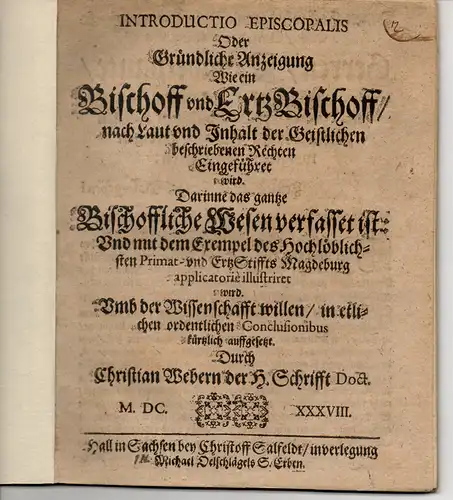 INTRODUCTIO EPISCOPALIS
Oder
Gründliche Anzeigung
Wie ein
Bischoff vnd ErtzBischoff /
nach Laut vnd Inhalt der Geistlichen
beschriebenen Rechten
Eingeführet
wird.
Darinne das gantze
Bischoffliche Wesen verfasset ist
Vnd mit dem Exempel des Hochlöblich-
sten Primat- vnd ErtzStiffts Magdeburg
applicatoriè illustriret
wird.
Vmb der Wissenschafft willen / in etli-
chen ordentlichen Conclusionibus
kürtzlich auffgesetzt.
Durch
Christian Webern der H. Schrifft Doct.
M. DC. XXXVIII.
Hall in Sachsen bey Christoff Salfeldt / inverlegung
Michael Oelschlägels S. Erben.